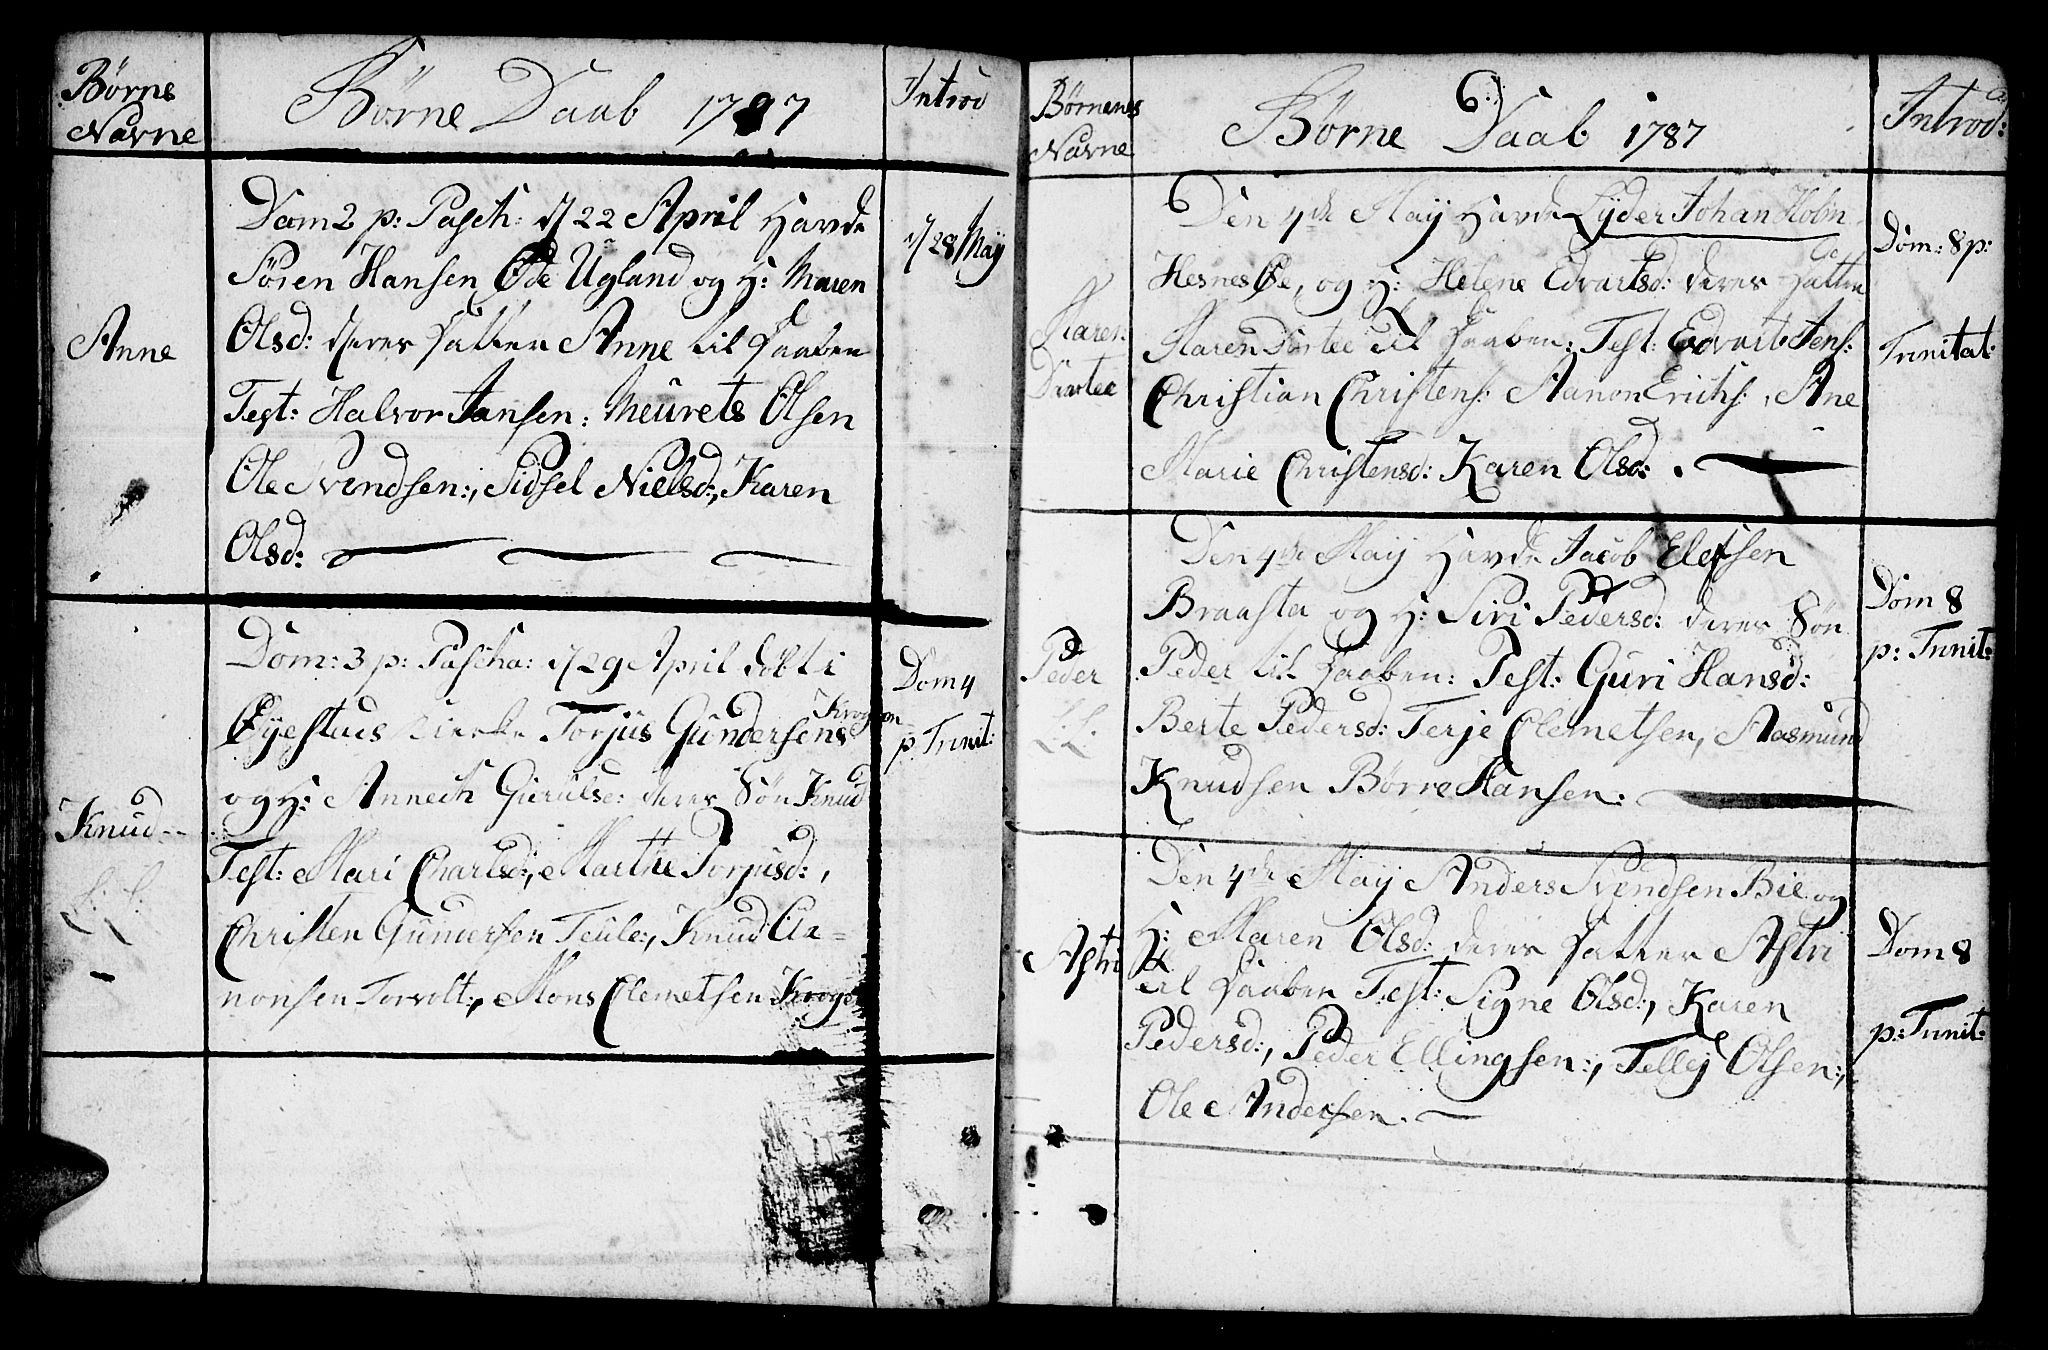 Børne
Navne
Børne Daab 1787
Introd
Anne
Dom 2 p: Pasch: d/ 22 April Havde
Sören Hansen Øde Ugland og H: Maren
Olsd: deres Datter Anne til Daaben
Test: Halvor Jansen: Meurets Olsen
Ole Svendsen:, Sidsel Nielsd:, Karen
Olsd:
d/ 28 Maÿ
Knud
Dom: 3 p: Pascha: d/ 29 April döbt i
Øyestads Kirke Torjus Gundersens Krogen
og H: Annech deres Sön Knud
Test: Mari Charlsd:, Marthe Torjusd:,
Christen Gundersen Teule:, Knud Aa=
nonsen Torvolt:, Mons Clemetsen Krogen
Dom 4
p. Trinit:
Børnenes
Navne
Børne Daab 1787
Introd:
Karen
Dortee
Den 4de Maÿ Havde Lyder Johan Holm
Hesnes Øe, og H: Helene Edvartsd: deres Datter
Karen Dortee til Daaben: Test: Edvart Jens:
Christian Christens: Aanon Erichs:, Ane
Marie Christensd: Karen Olsd:
Dom: 8 p:
Trinitat:
Peder
Den 4de Maÿ Havde Jacob Elefsen
Braasta og H: Siri Pedersd: deres Sön
Peder til Daaben: Test: Guri Hansd:
Berte Pedersd: Terje Clemetsen, Aasmund
Knudsen Børre Hansen:
Dom 8
p: Trinit:
Astri
Den 4de Maÿ Anders Svendsen Bie og
H: Maren Olsd: deres Datter Astri
til Daaben Test: Signe Olsd:, Karen
Pedersd:, Peder Ellingsen:, Tellej Olsen:,
Ole Andersen.
Dom 8
p: Trinit: